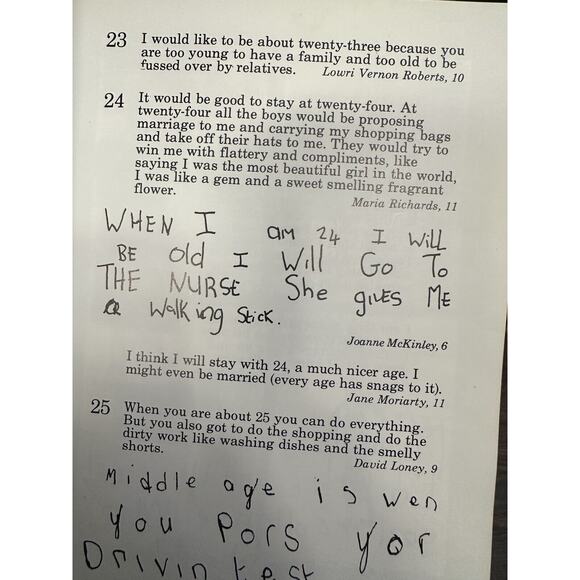 23 I would like to be about twenty-three because you
are too young to have a family and too old to be
fussed over by relatives. Lowri Vernon Roberts, 10
24 It would be good to stay at twenty-four. At
twenty-four all the boys would be proposing
marriage to me and carrying my shopping bags
and take off their hats to me. They would try to
win me with flattery and compliments, like
saying I was the most beautiful girl in the world,
I was like a gem and a sweet smelling fragrant
flower.
Maria Richards, 11
WHEN I am 24 I Will
BE old I Will Go To
THE NURSE She gives ME
a Walking Stick.
Joanne McKinley, 6
I think I will stay with 24, a much nicer age. I
might even be married (every age has snags to it).
Jane Moriarty, 11
25 When you are about 25 you can do everything.
But you also got to do the shopping and do the
dirty work like washing dishes and the smelly
shorts.
David Loney, 9
Middle age is wen
you Pors yor
Drivin test